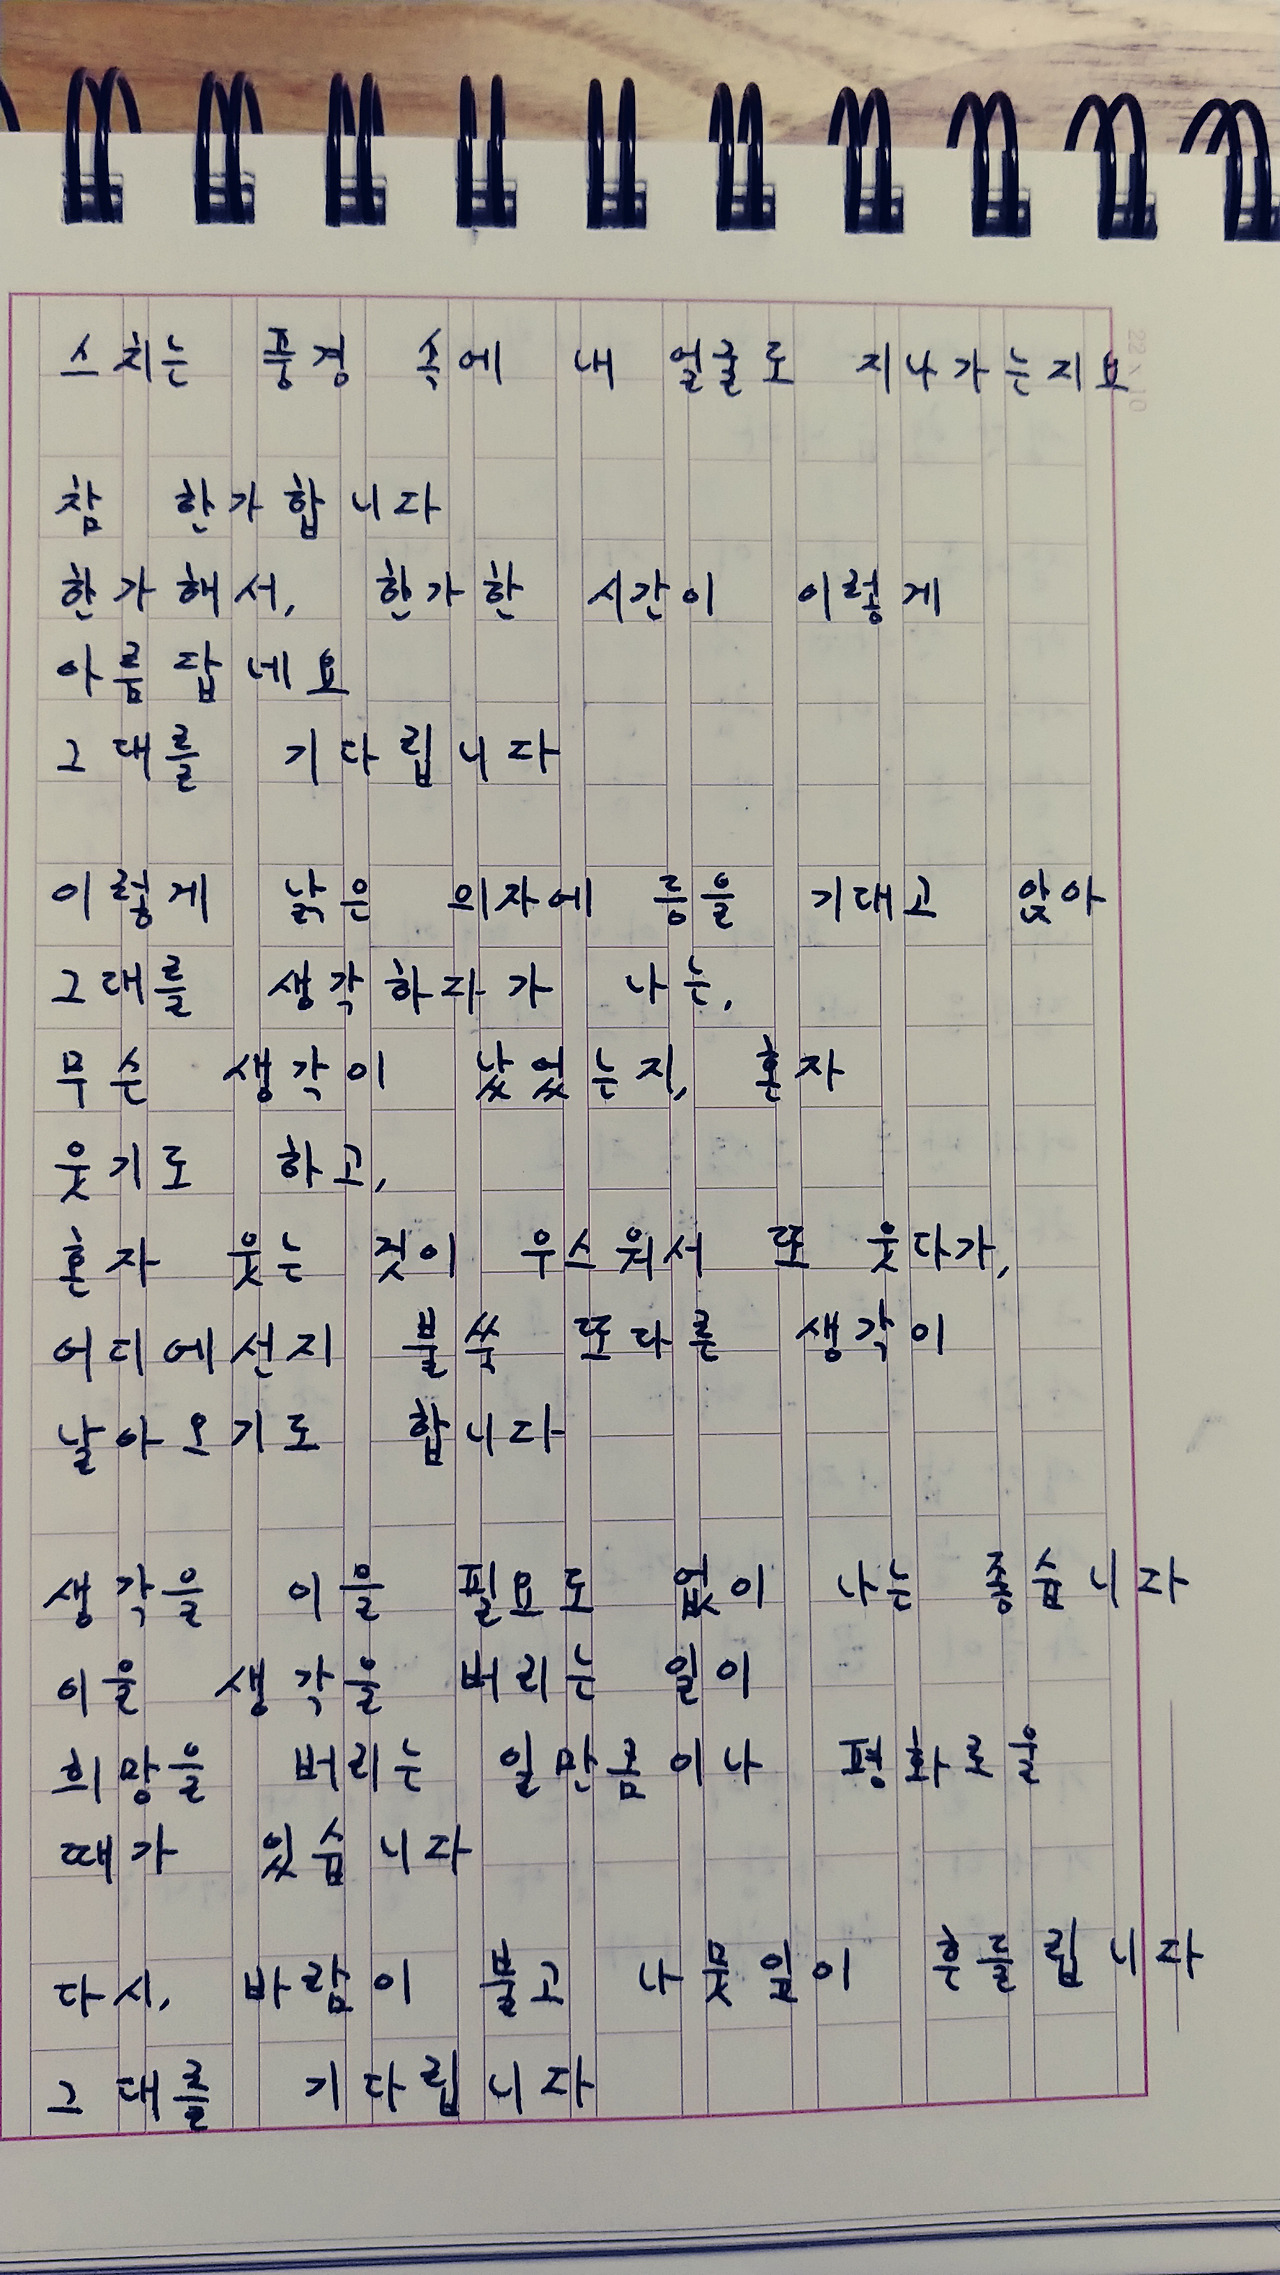 스치는 풍경 속에 내 얼굴도 지나가는지요
참 한가합니다
한가해서, 한가한 시간이 이렇게
아름답네요
그대를 기다립니다
이렇게 낡은 의자에 등을 기대고 앉아
그대를 생각하다가 나는,
무슨 생각이 났었는지, 혼자
웃기도 하고,
혼자 웃는 것이 우스워서 또 웃다가,
어디에선지 불쑥 또다른 생각이
날아오기도 합니다
생각을 이을 필요도 없이 나는 좋습니다
이을 생각을 버리는 일이
희망을 버리는 일만큼이나 평화로울
때가 있습니다
다시, 바람이 불고 나뭇잎이 흔들립니다
그대를 기다립니다